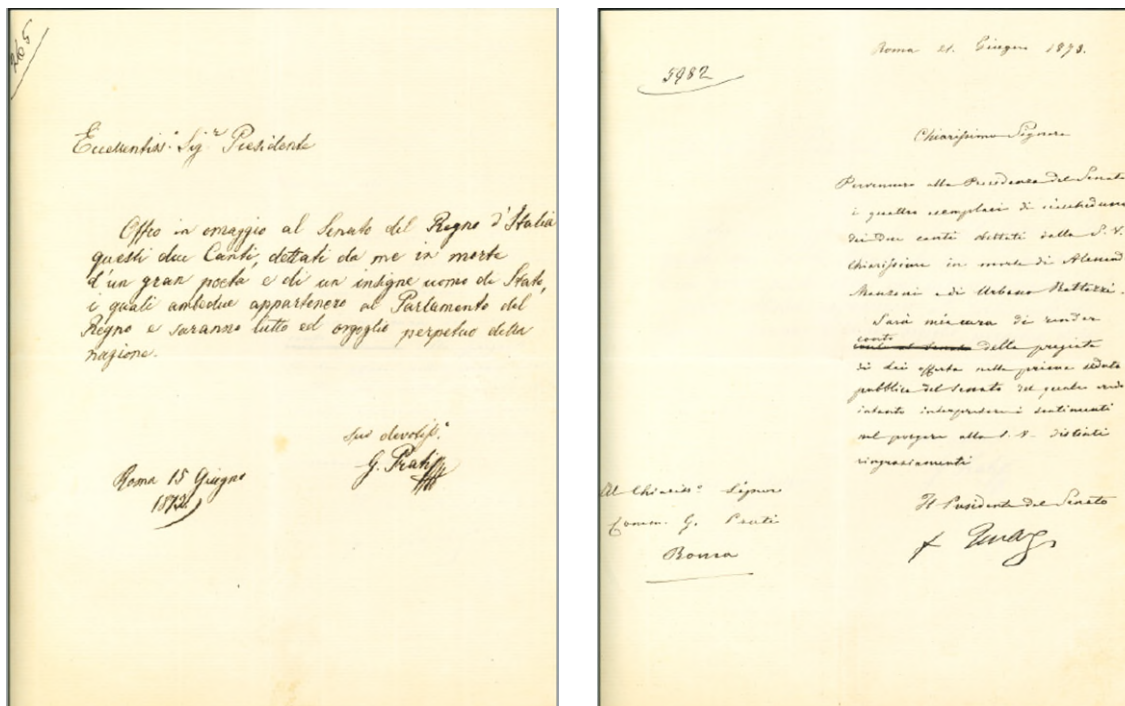 265
Eccellentiss.º Sig.r Presidente
Offro in omaggio al Senato del Regno d'Italia
questi due Canti, dettati da me in morte
d'un gran poeta e di un insigne uomo di Stato,
i quali ambidue appartenero al Parlamento del
Regno e saranno lutto ed orgoglio perpetuo della
nazione.
suo devotiss.º
G. Prati
Roma 15 Giugno
1873
Roma 21. Giugno 1873.
5982
Chiarissimo Signore
Pervennero alla Presidenza del Senato
i quattro esemplari di ciascheduno
dei due canti dettati dalla S. V.
Chiarissima in morte di Alessand
Manzoni e di Urbano Rattazzi.
Sarà mia cura di render
conto
della pregiata
di Lei offerta nella prima seduta
pubblica del Senato del quale
intanto i sentimenti
nel porgere alla S. V. distinti
ringraziamenti
Il Presidente del Senato
Al Chiariss.º Signor
Comm. G. Prati
Roma